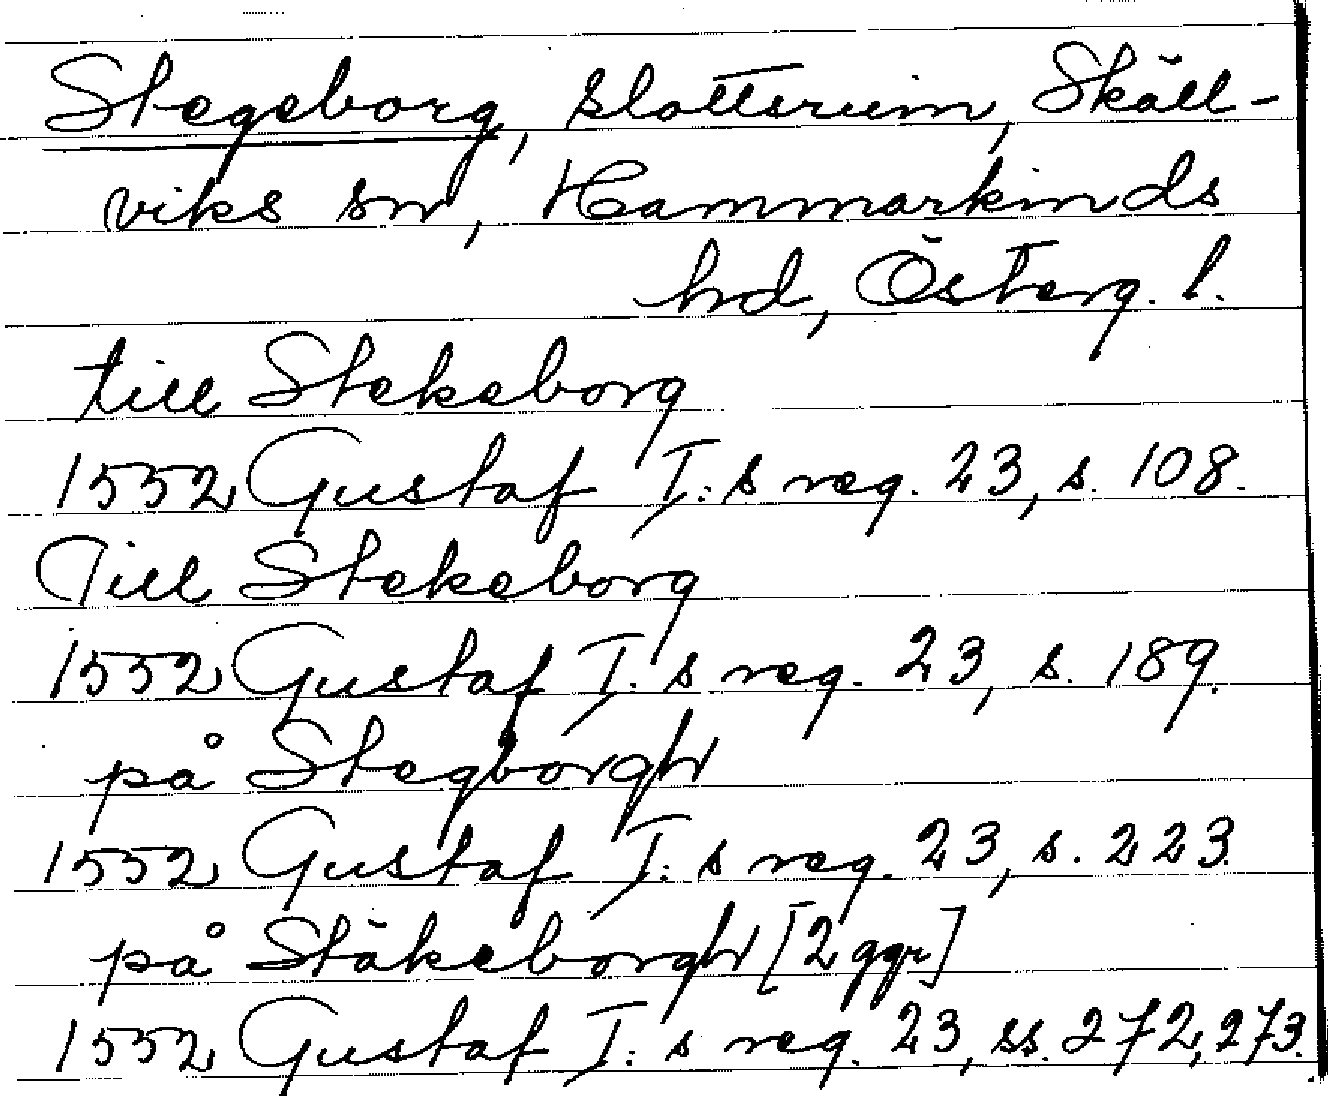 Stegeborg, slottsruin, Skäll-
viks sn, Hammarkinds
hd, Österg. l.
till Stekeborg
1552 Gustaf I:s reg. 23, s. 108.
Till Stekeborg
1552 Gustaf I:s reg. 23, s. 189.
på Stegborgh
1552 Gustaf I:s reg. 23, s. 223.
på Stäkeborgh [2 ggr]
1552 Gustaf I:s reg. 23, ss. 272, 273.